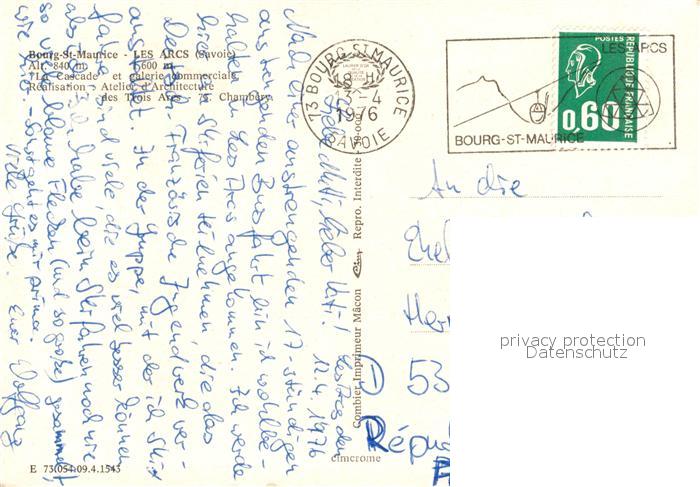 Bourg-St-Maurice - LES ARCS (Savoie)
Alt. 840 m. 1.600 m.
"La Cascade" et galerie commerciale
Réalisation : Atelier d'Architecture
des Trois Arcs - Chambéry
73 BOURG ST MAURICE
18 H
13 - 4
1976
SAVOIE
LES ARCS
BOURG-ST-MAURICE
POSTES
0,60
REPUBLIQUE FRANÇAISE
Les Arcs den
12.4.1976
Liebe Mutti, lieber Vati!
Nach einer anstrengenden 17-stündigen
Busfahrt bin ich wohlbe-
halten in Les Arcs angekommen. Ich werde
hier an Skiferien teilnehmen, die das
Deutsch Französische Jugendwerk ver-
anstaltet. In der Gruppe, mit der ich Ski
fahre, sind viele, die es viel besser können
als ich. Ich habe beim Skifahren noch nie
so viele blaue Flecken (und so große) gesammelt,
wie hier. Sonst geht es mir prima.
Viele Grüße. Euer Wolfgang
Combier Imprimeur Mâcon Cim Repro. Interdite
cimcrome
E 73.054.09.4.1543
An die
Her
D 53
Répu
privacy protection
Datenschutz